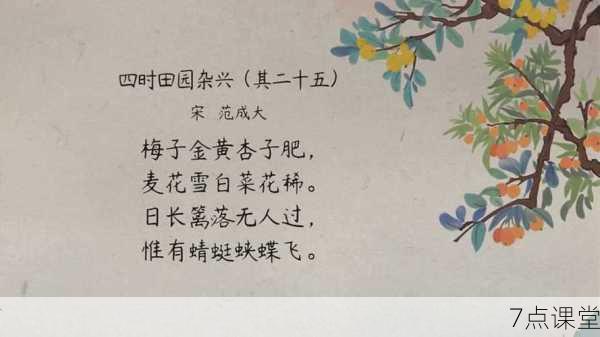 四时田园杂兴（其二十五）
宋 范成大
梅子金黄杏子肥，
麦花雪白菜花稀。
日长篱落无人过，
惟有蜻蜓蛱蝶飞。
7点课堂